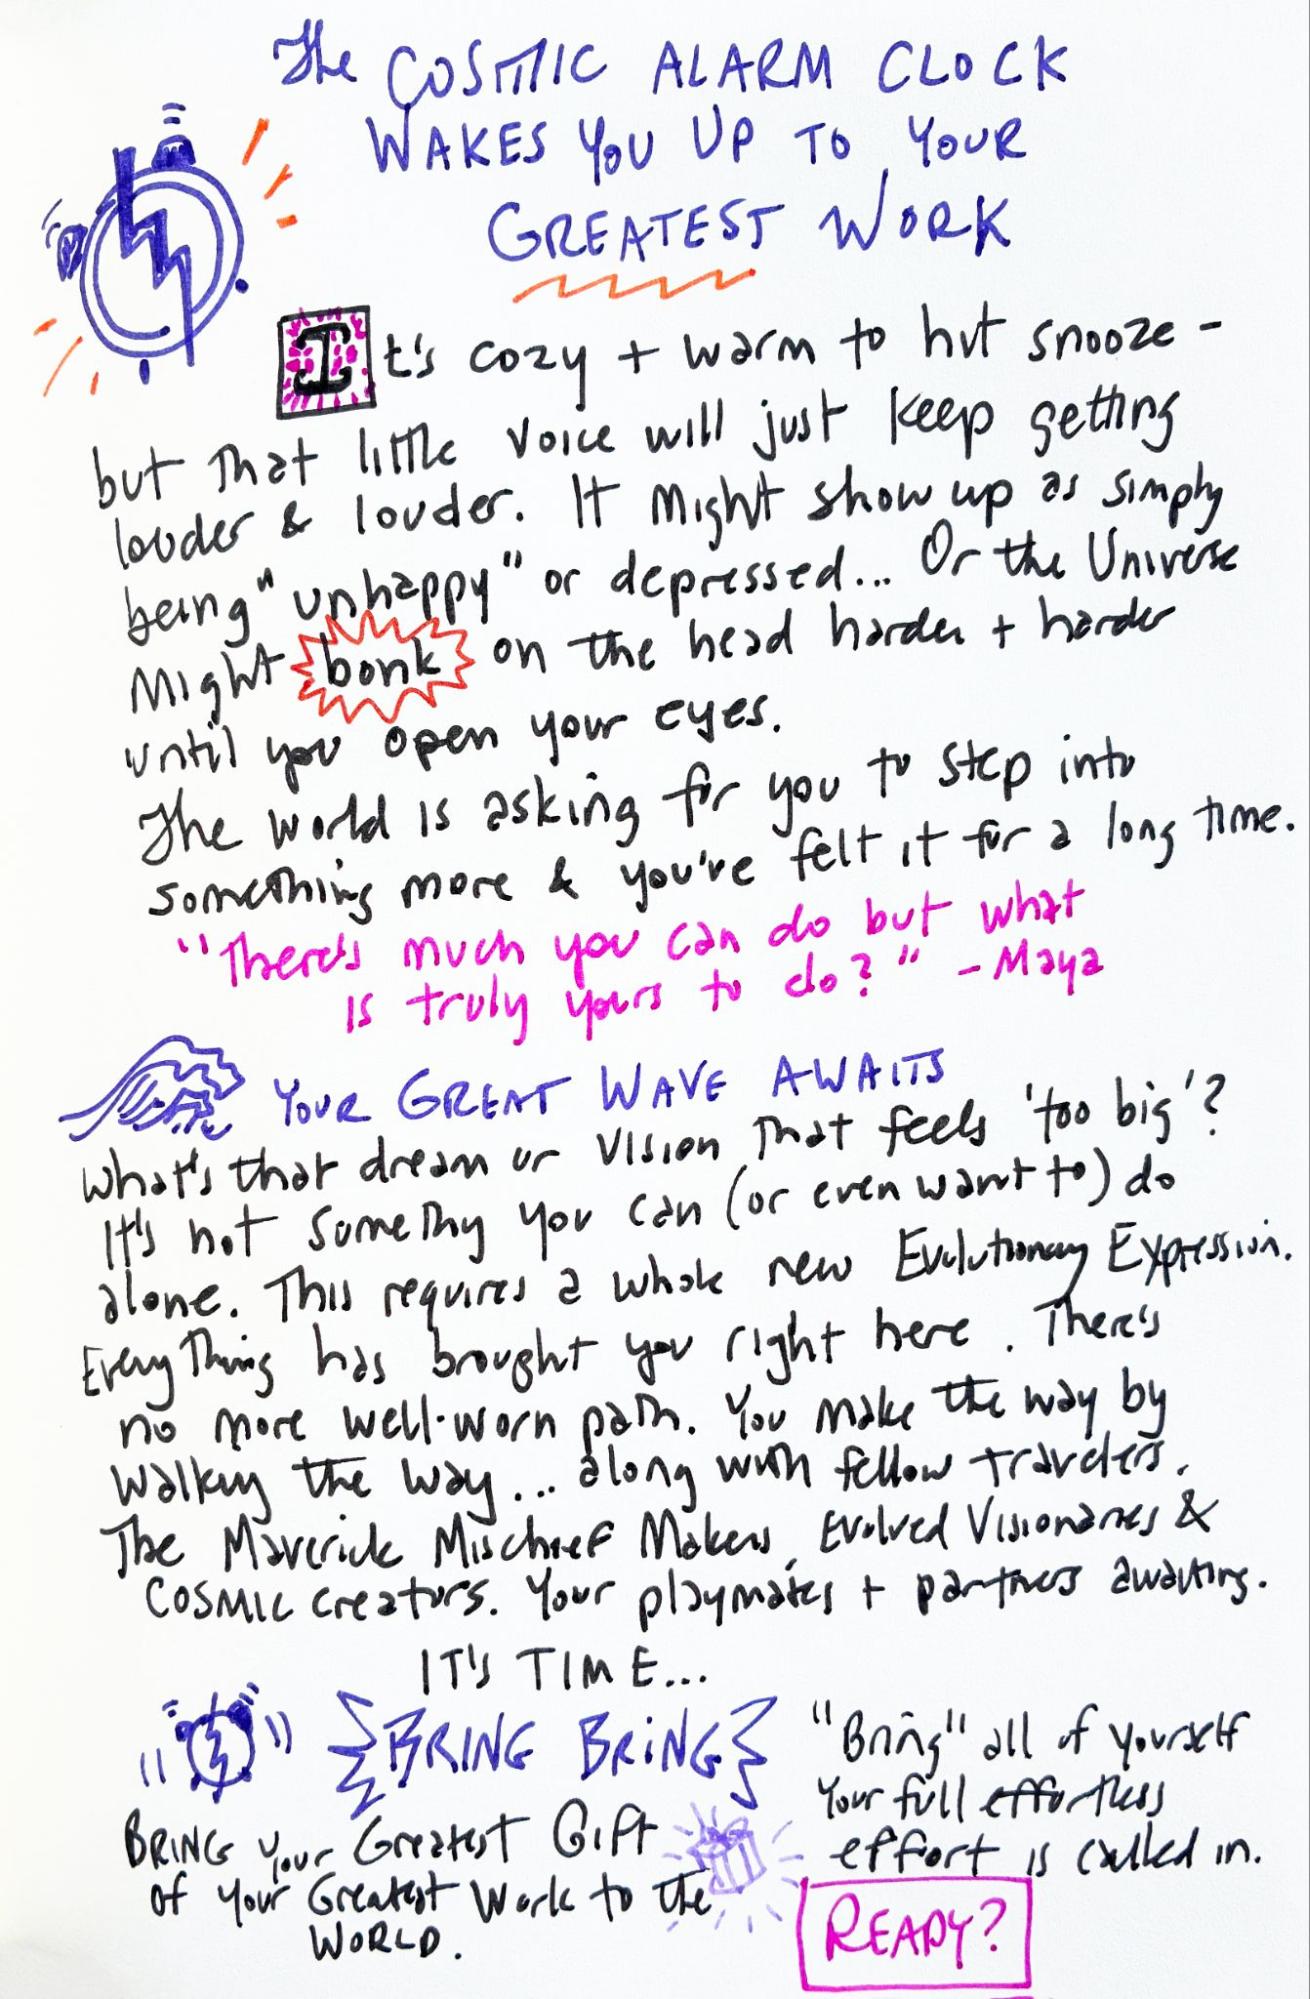 The COSMIC ALARM CLOCK
WAKES YOU UP TO YOUR
GREATEST WORK
It's cozy + warm to hit snooze -
but that little voice will just keep getting
louder & louder. It might show up as simply
being "unhappy" or depressed... Or the Universe
Might bonk on the head harder + harder
until you open your eyes.
The world is asking for you to step into
something more & you've felt it for a long time.
"There's much you can do but what
is truly yours to do?" - Maya
YOUR GREAT WAVE AWAITS
What's that dream or vision that feels 'too big'?
It's not something you can (or even want to) do
alone. This requires a whole new Evolutionary Expression.
Everything has brought you right here. There's
no more well-worn path. You make the way by
walking the way... along with fellow travelers.
The Maverick Mischief Makers, Evolved Visionaries &
COSMIC creators. Your playmates + partners awaiting.
IT'S TIME...
{BRING BRING}
"Bring" all of yourself
Your full effortless
effort is called in.
BRING your Greatest Gift
of your Greatest Work to the
WORLD.
READY?